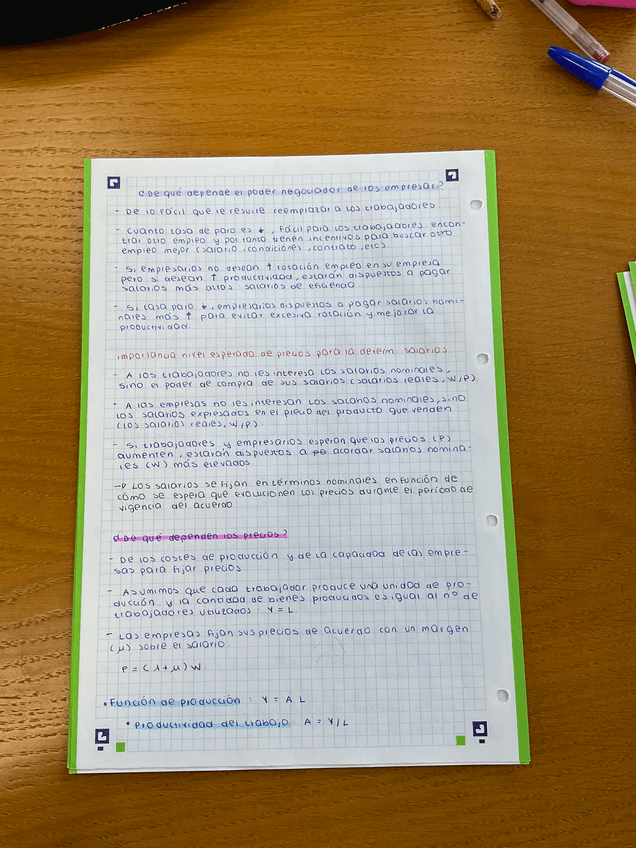 ¿De qué depende el poder negociador de los empresar.?
- De lo fácil que le resulte reemplazar a los trabajadores
- Cuanto tasa de paro es ↓, fácil para los trabajadores encon-
trar otro empleo y por tanto tienen incentivos para buscar otro
empleo mejor (salario, condiciones, contrato, etc).
- Si empresarios no desean ↑ rotación empleo en su empresa
pero si desean ↑ productividad, estarán dispuestos a pagar
salarios más altos: salarios de eficiencia
- Si tasa paro ↓, empresarios dispuestos a pagar salarios nomi-
nales más ↑ para evitar excesiva rotación y mejorar la
productividad.
Importancia nivel esperado de precios para la determ. salarios
- A los trabajadores no les interesa los salarios nominales,
sino el poder de compra de sus salarios (salarios reales, W/P).
- A las empresas no les interesan los salarios nominales, sino
los salarios expresados en el precio del producto que venden
(los salarios reales, W/P)
- Si trabajadores y empresarios esperan que los precios (P)
aumenten, estarán dispuestos a acordar salarios nomina-
les (W) más elevados
→ Los salarios se fijan en términos nominales en función de
cómo se espera que evolucionen los precios durante el periodo de
vigencia del acuerdo
¿De qué dependen los precios?
- De los costes de producción y de la capacidad de las empre-
sas para fijar precios
- Asumimos que cada trabajador produce una unidad de pro-
ducción y la cantidad de bienes producidos es igual al nº de
trabajadores utilizados: Y = L
- Las empresas fijan sus precios de acuerdo con un margen
(μ) sobre el salario:
P = (1+μ) W
• Función de producción: Y = A L
• Productividad del trabajo: A = Y/L